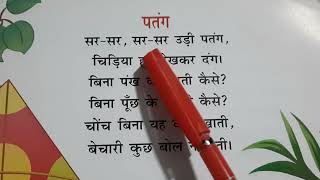 पतंग
सर-सर, सर-सर उड़ी पतंग,
चिड़िया देखकर दंग।
बिना पंख कैसे?
बिना पूँछ के कैसे?
चोंच बिना यह
बेचारी कुछ बोल